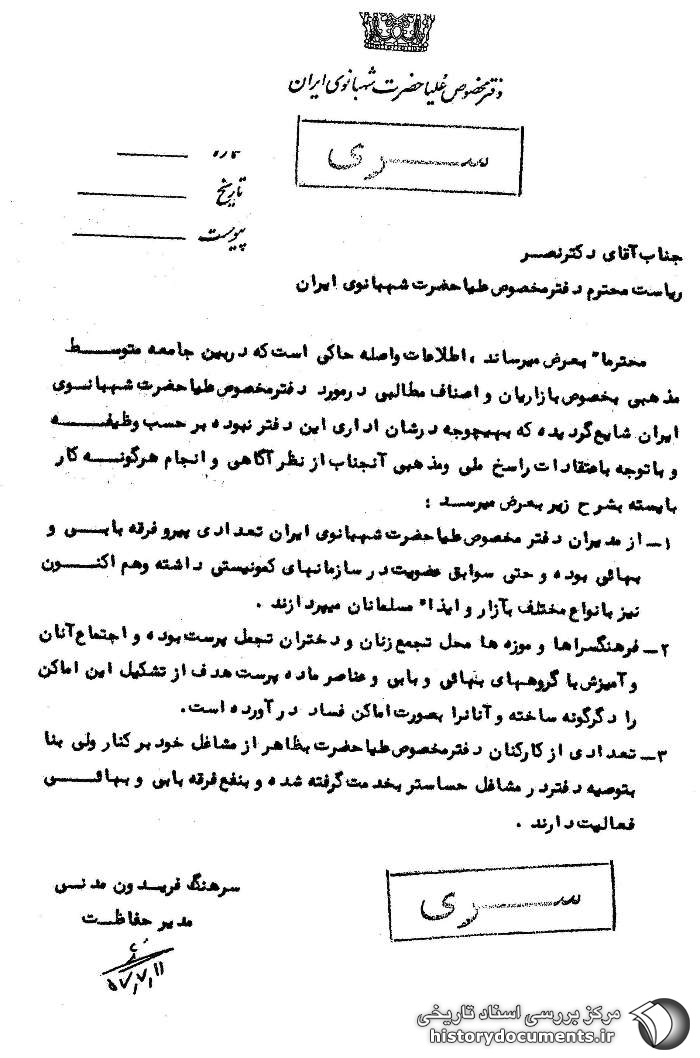 دفتر مخصوص علیاحضرت شهبانوی ایران
سری
تاریخ
پیوست
جناب آقای دکتر نصر
ریاست محترم دفتر مخصوص علیا حضرت شهبانوی ایران
محترما" بعرض میرساند ، اطلاعات واصله حاکی است که در بین جامعه متوسط
مذهبی بخصوص بازاریان و اصناف مطالبی در مورد دفتر مخصوص علیا حضرت شهبانوی
ایران شایع گردیده که بهیچوجه در شان اداری این دفتر نبوده بر حسب وظیفه
و با توجه باعتقادات راسخ ملی و مذهبی آنجناب از نظر آگاهی و انجام هرگونه کار
بایسته بشرح زیر بعرض میرسد :
۱- از مدیران دفتر مخصوص علیا حضرت شهبانوی ایران تعدادی پیرو فرقه بابی و
بهائی بوده و حتی سوابق عضویت در سازمانهای کمونیستی داشته و هم اکنون
نیز بانواع مختلف بآزار و ایذاء مسلمانان میپردازند .
۲- فرهنگسراها و موزه ها محل تجمع زنان و دختران تجمل پرست بوده و اجتماع آنان
و آمیزش با گروههای بهائی و بابی و عناصر ماده پرست هدف از تشکیل این اماکن
را دگرگونه ساخته و آنانرا بصورت اماکن فساد در آورده است.
۳- تعدادی از کارکنان دفتر مخصوص علیا حضرت بظاهر از مشاغل خود بر کنار ولی بنا
بتوصیه دفتر در مشاغل حساستر بخدمت گرفته شده و بنفع فرقه بابی و بهائی
فعالیت دارند .
سرهنگ فریدون مدنی
مدیر حفاظت
۵۷٫۷٫۱۱
سری
مرکز بررسی اسناد تاریخی
historydocuments.ir